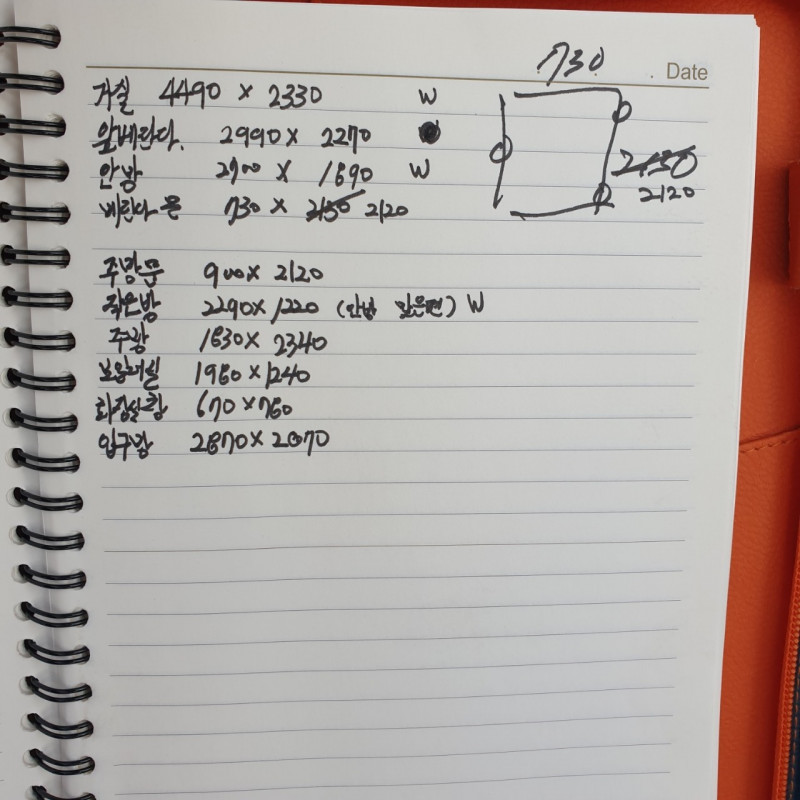 730
Date
거실 4490 × 2330 W
앞베란다. 2990 × 2270
안방 2700 × 1890 W
베란다 문 730 × 2130 2120
2130
2120
주방문 900 × 2120
작은방 2290 × 1220 (안방 맞은편) W
주방 1830 × 2340
보일러실 1980 × 1240
화장실창 670 × 780
입구방 2870 × 2070